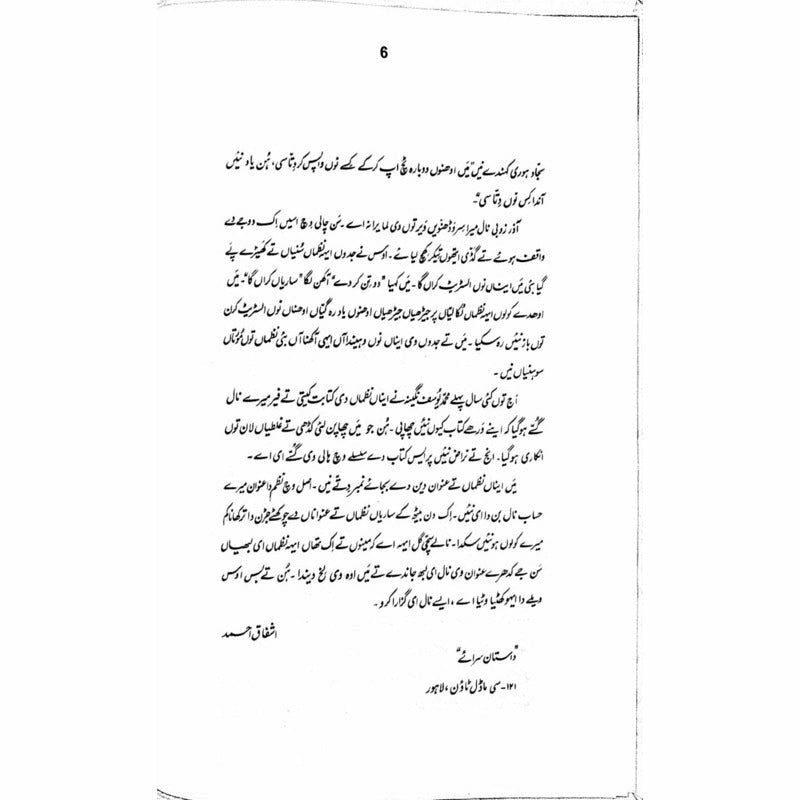 6
سجاد ہوری کہندے نیں "میں اوھنوں دوبارہ ٹچ اپ کرکے کسے نوں واپس کر دِتّا سی، ہُن یاد نئیں
آندا کس نوں دِتّا سی"۔
آذر زوبی نال میرا سروڈھنویں ویر توں وی لما یرانہ اے ۔ سن چالی وچ اسیں اِک دوجے دے
واقف ہوئے تے گڈی ایتھوں تیکر کھچ لیائے ۔ اوس نے جدوں ایہہ نظماں سُنیاں تے کھیڑے پَے
گیا بئی میں ایہناں نوں السٹریٹ کراں گا ۔ میں کہیا "دو تن کر دے" آکھن لگا "ساریاں کراں گا"۔ میں
اوھدے کولوں ایہہ نظماں لُکا لئیاں پر جیڑھیاں جیڑھیاں اوھنوں یاد رہ گئیاں اوھناں نوں السٹریٹ کرن
توں باز نئیں رہ سکیا ۔ میں تے جدوں وی ایہناں نوں ویہندا آں ایہی آکھنا آں بئی نظماں توں مُورتاں
سوہنیاں نیں ۔
اَج توں کئی سال پہلے محمد یوسف نگینہ نے ایہناں نظماں دی کتابت کیتی تے فیر میرے نال
گُسّے ہوگیا کہ اینے ورھے کتاب کیوں نئیں چھاپی ۔ ہُن جو میں چھاپن لئی کڈھی تے غلطیاں لان توں
انکاری ہوگیا ۔ انج تے ناراض نئیں پر ایس کتاب دے سلسلے وچ ہالی وی گُسّے ای اے ۔
میں ایہناں نظماں تے عنوان دین دے بجائے نمبر دِتّے نیں ۔ اصل وچ نظم دا عنوان میرے
حساب نال بن دا ای نئیں ۔ اِک دن بیٹھ کے ساریاں نظماں تے عنواناں دے چوکھٹے جڑن دا ترکھانا کم
میرے کولوں ہو نئیں سکدا ۔ نالے سچی گل ایہہ اے کہ مینوں تے اِک تھاں ایہہ نظماں ای لبھیاں
سن جے کدھرے عنوان وی نال ای لبھ جاندے تے میں اوہ وی رکھ دیندا ۔ ہُن تے بس اوس
ویلے دا ایہو کھٹیا وٹیا اے ، ایسے نال ای گزارا کرو ۔
اشفاق احمد
"داستان سرائے"
۱۲۱۔سی ماڈل ٹاؤن ، لاہور